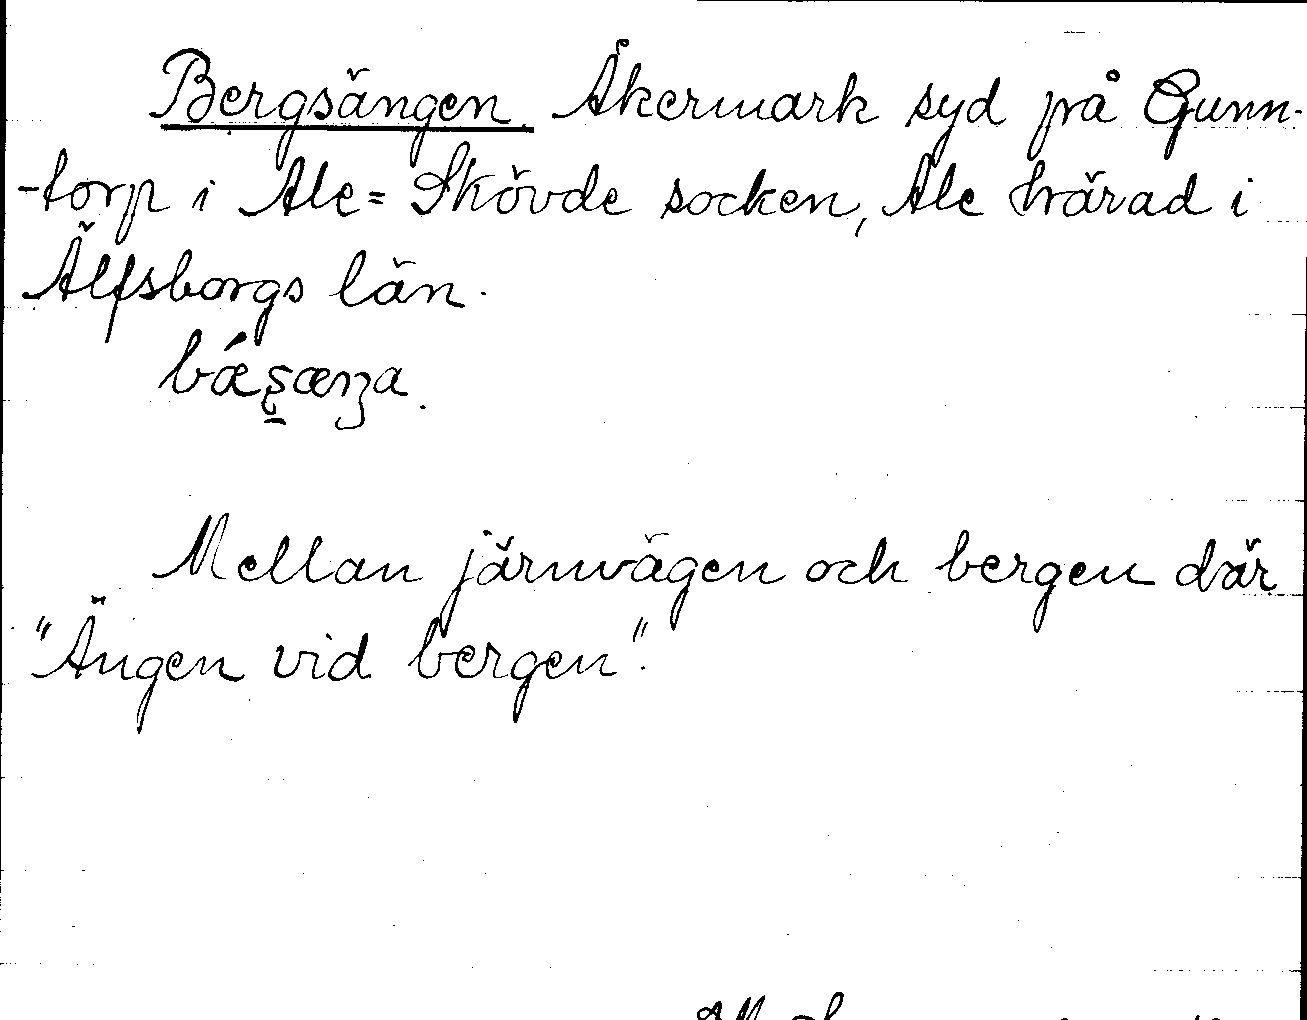 Bergsängen. Åkermark syd på Gunn-
-torp i Ale=Skövde socken, Ale härad i
Älfsborgs län.
bǽʂæŋa.
Mellan järnvägen och bergen där
"Ängen vid bergen".